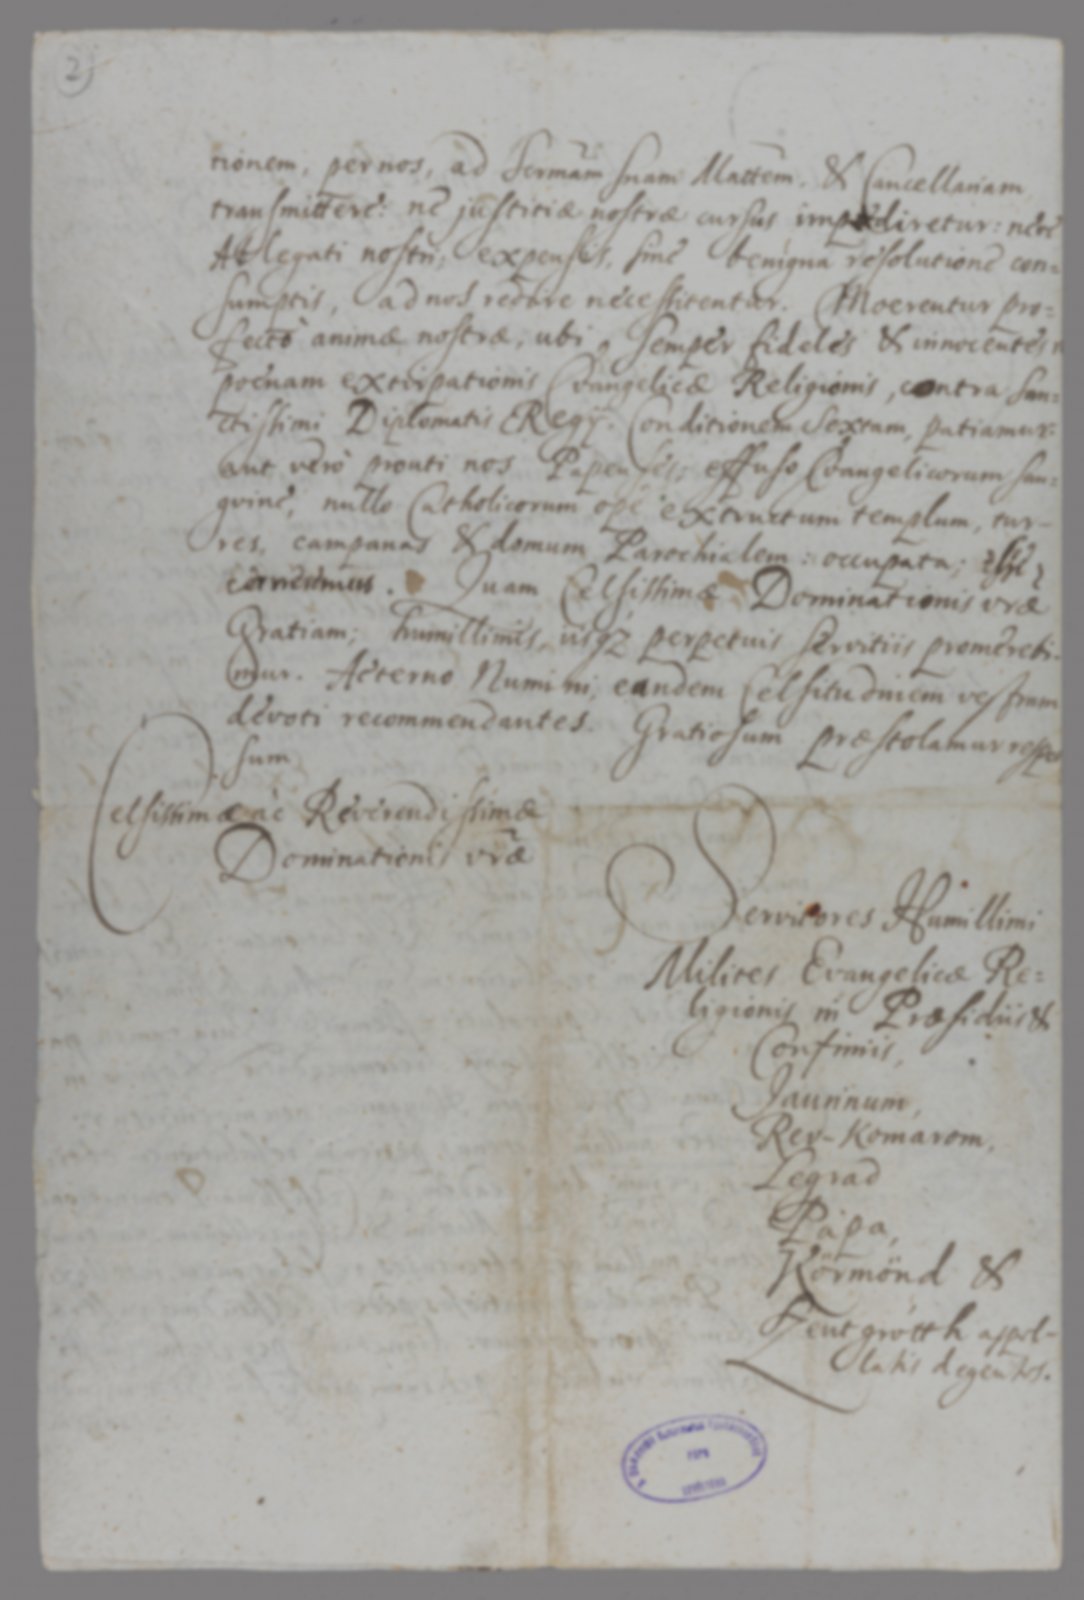 2
tionem, per nos, ad Sermãm suam Mattem, & Cancellariam
transmittere: ne justitiæ nostræ cursus impediretur: neve
Ablegati nostri, expensis, sine benigna resolutione con=
sumptis, ad nos redire necessitentur. Moerentur pro=
fecto animæ nostræ, ubi, semper fideles & innocentes
poenam extirpationis Evangelicæ Religionis, contra San=
ctissimi Diplomatis Regij Conditionem Sextam, patiamur:
aut vero prouti nos Papenses; effuso Evangelicorum san=
gvine, nullo Catholicorum ope extructum templum, tur-
res, campanas & domum Parochialem: occupata; esse
cernimus. Quam Celsissimæ Dominationis vræ
Gratiam; humillimis, usqz perpetuis servitiis promerebi-
mur. Aeterno Numini, eandem Celsitudinem vestram
devoti recommendantes. Gratiosum præstolamur respon
sum
Celsissimæ ac Reverendissimæ
Dominationis vræ
Servitores Humillimi
Milites Evangelicæ Re=
ligionis in Præsidiis &
Confiniis,
Jaurinum,
Rev-Komarom,
Legrad
Pápa,
Körmönd &
Szentgrótth appel-
latis degentes.